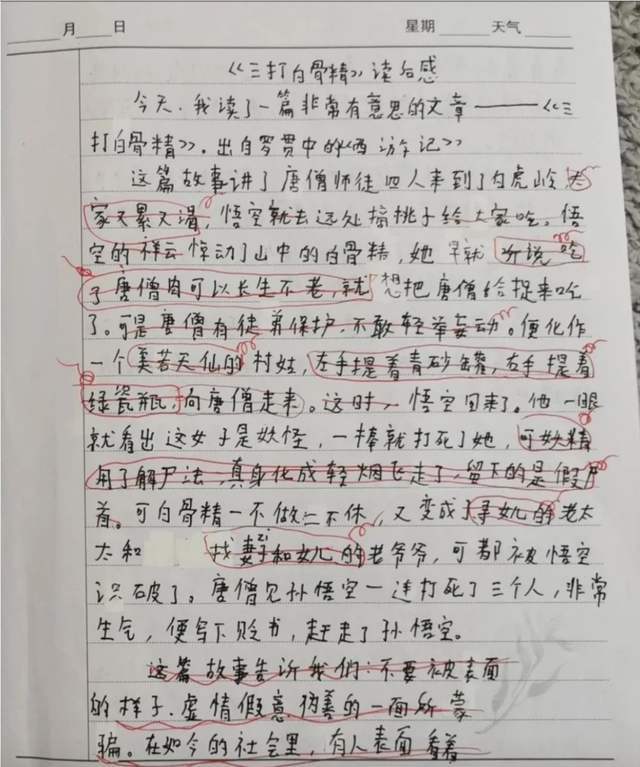 月 日 星期 天气
《三打白骨精》读后感
今天，我读了一篇非常有意思的文章——《三
打白骨精》，出自罗贯中的《西游记》
这篇故事讲了唐僧师徒四人来到了白虎岭，大
家又累又渴，悟空就去远处摘桃子给大家吃。悟
空的祥云惊动了山中的白骨精，她早就听说吃
了唐僧肉可以长生不老，就想把唐僧给捉来吃
了。可是唐僧有徒弟保护，不敢轻举妄动。便化作
一个美若天仙的村姑，左手提着青砂罐，右手提着
绿瓷瓶，向唐僧走来。这时，悟空回来了。他一眼
就看出这女子是妖怪，一棒就打死了她，可妖精
用了解尸法，真身化成轻烟飞走了，留下的是假尸
首。可白骨精一不做二不休，又变成了寻女儿的老太
太和 找妻子和女儿的老爷爷，可都被悟空
识破了。唐僧见孙悟空一连打死了三个人，非常
生气，便写下贬书，赶走了孙悟空。
这篇故事告诉我们：不要被表面
的样子、虚情假意伪善的一面所蒙
骗。在如今的社会里，有人表面看着